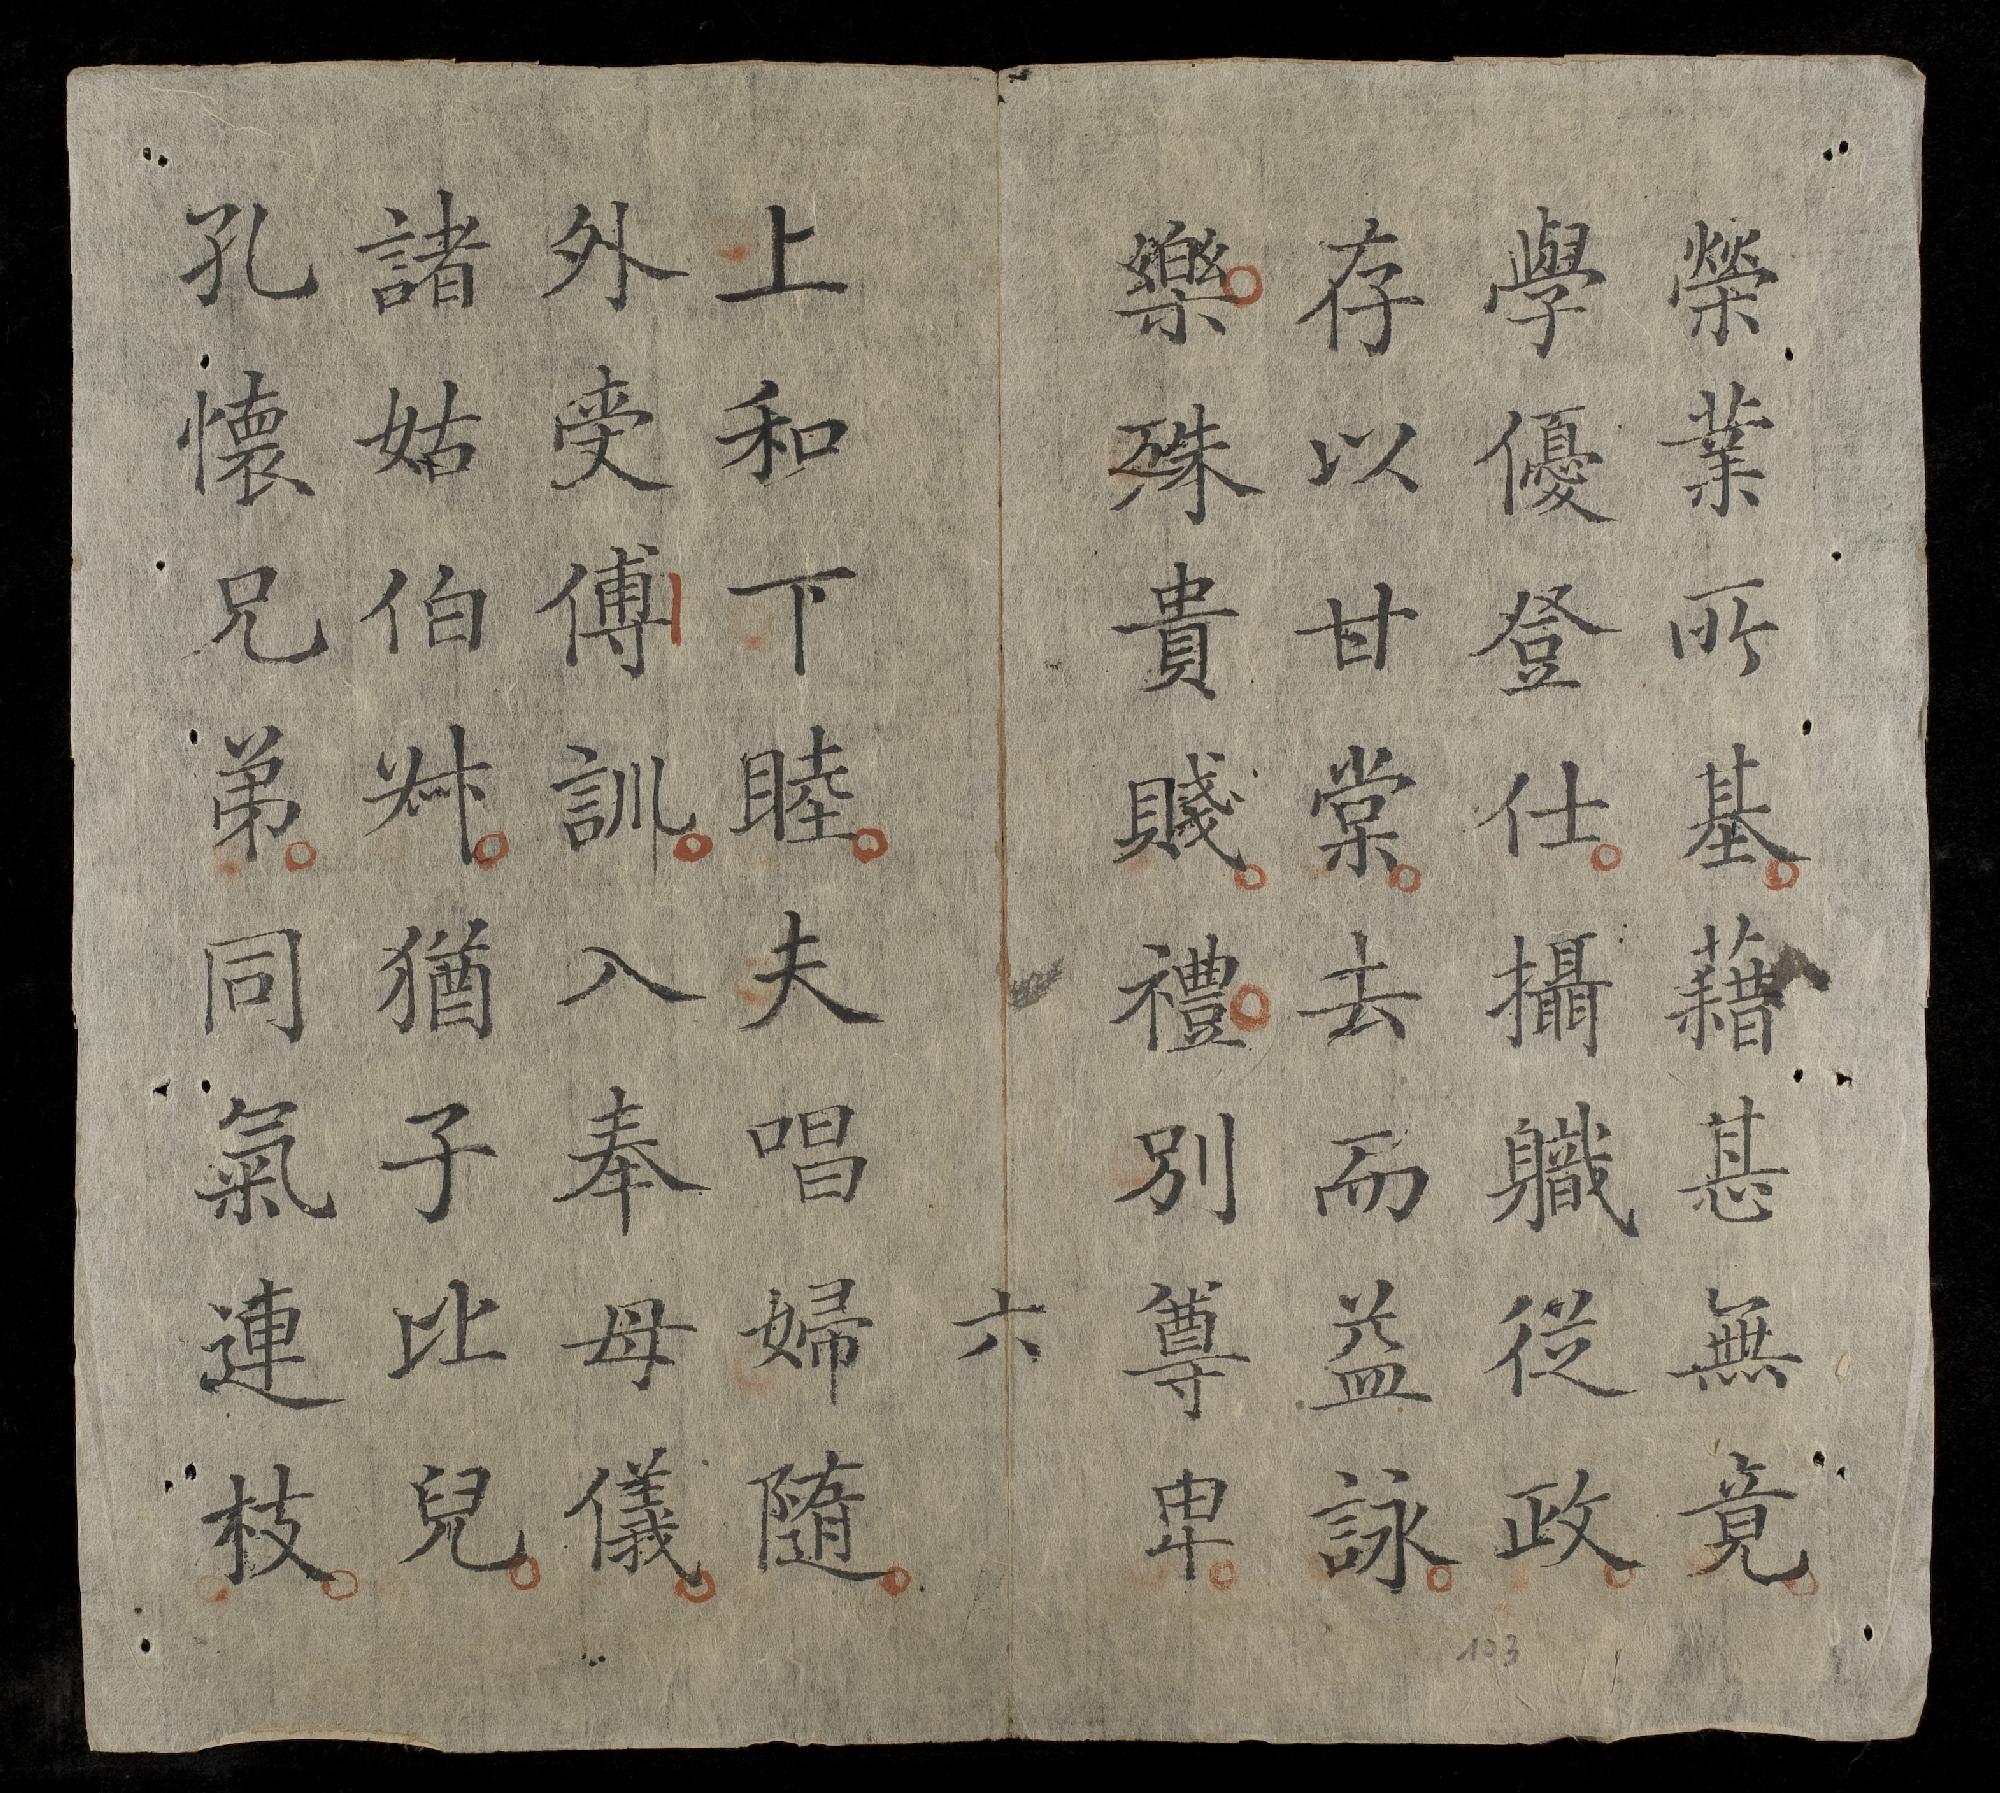 榮業所基藉甚無竟
學優登仕攝職從政
存以甘棠去而益詠
樂殊貴賤禮別尊卑
六
上和下睦夫唱婦隨
外受傅訓入奉母儀
諸姑伯叔猶子比兒
孔懷兄弟同氣連枝
103